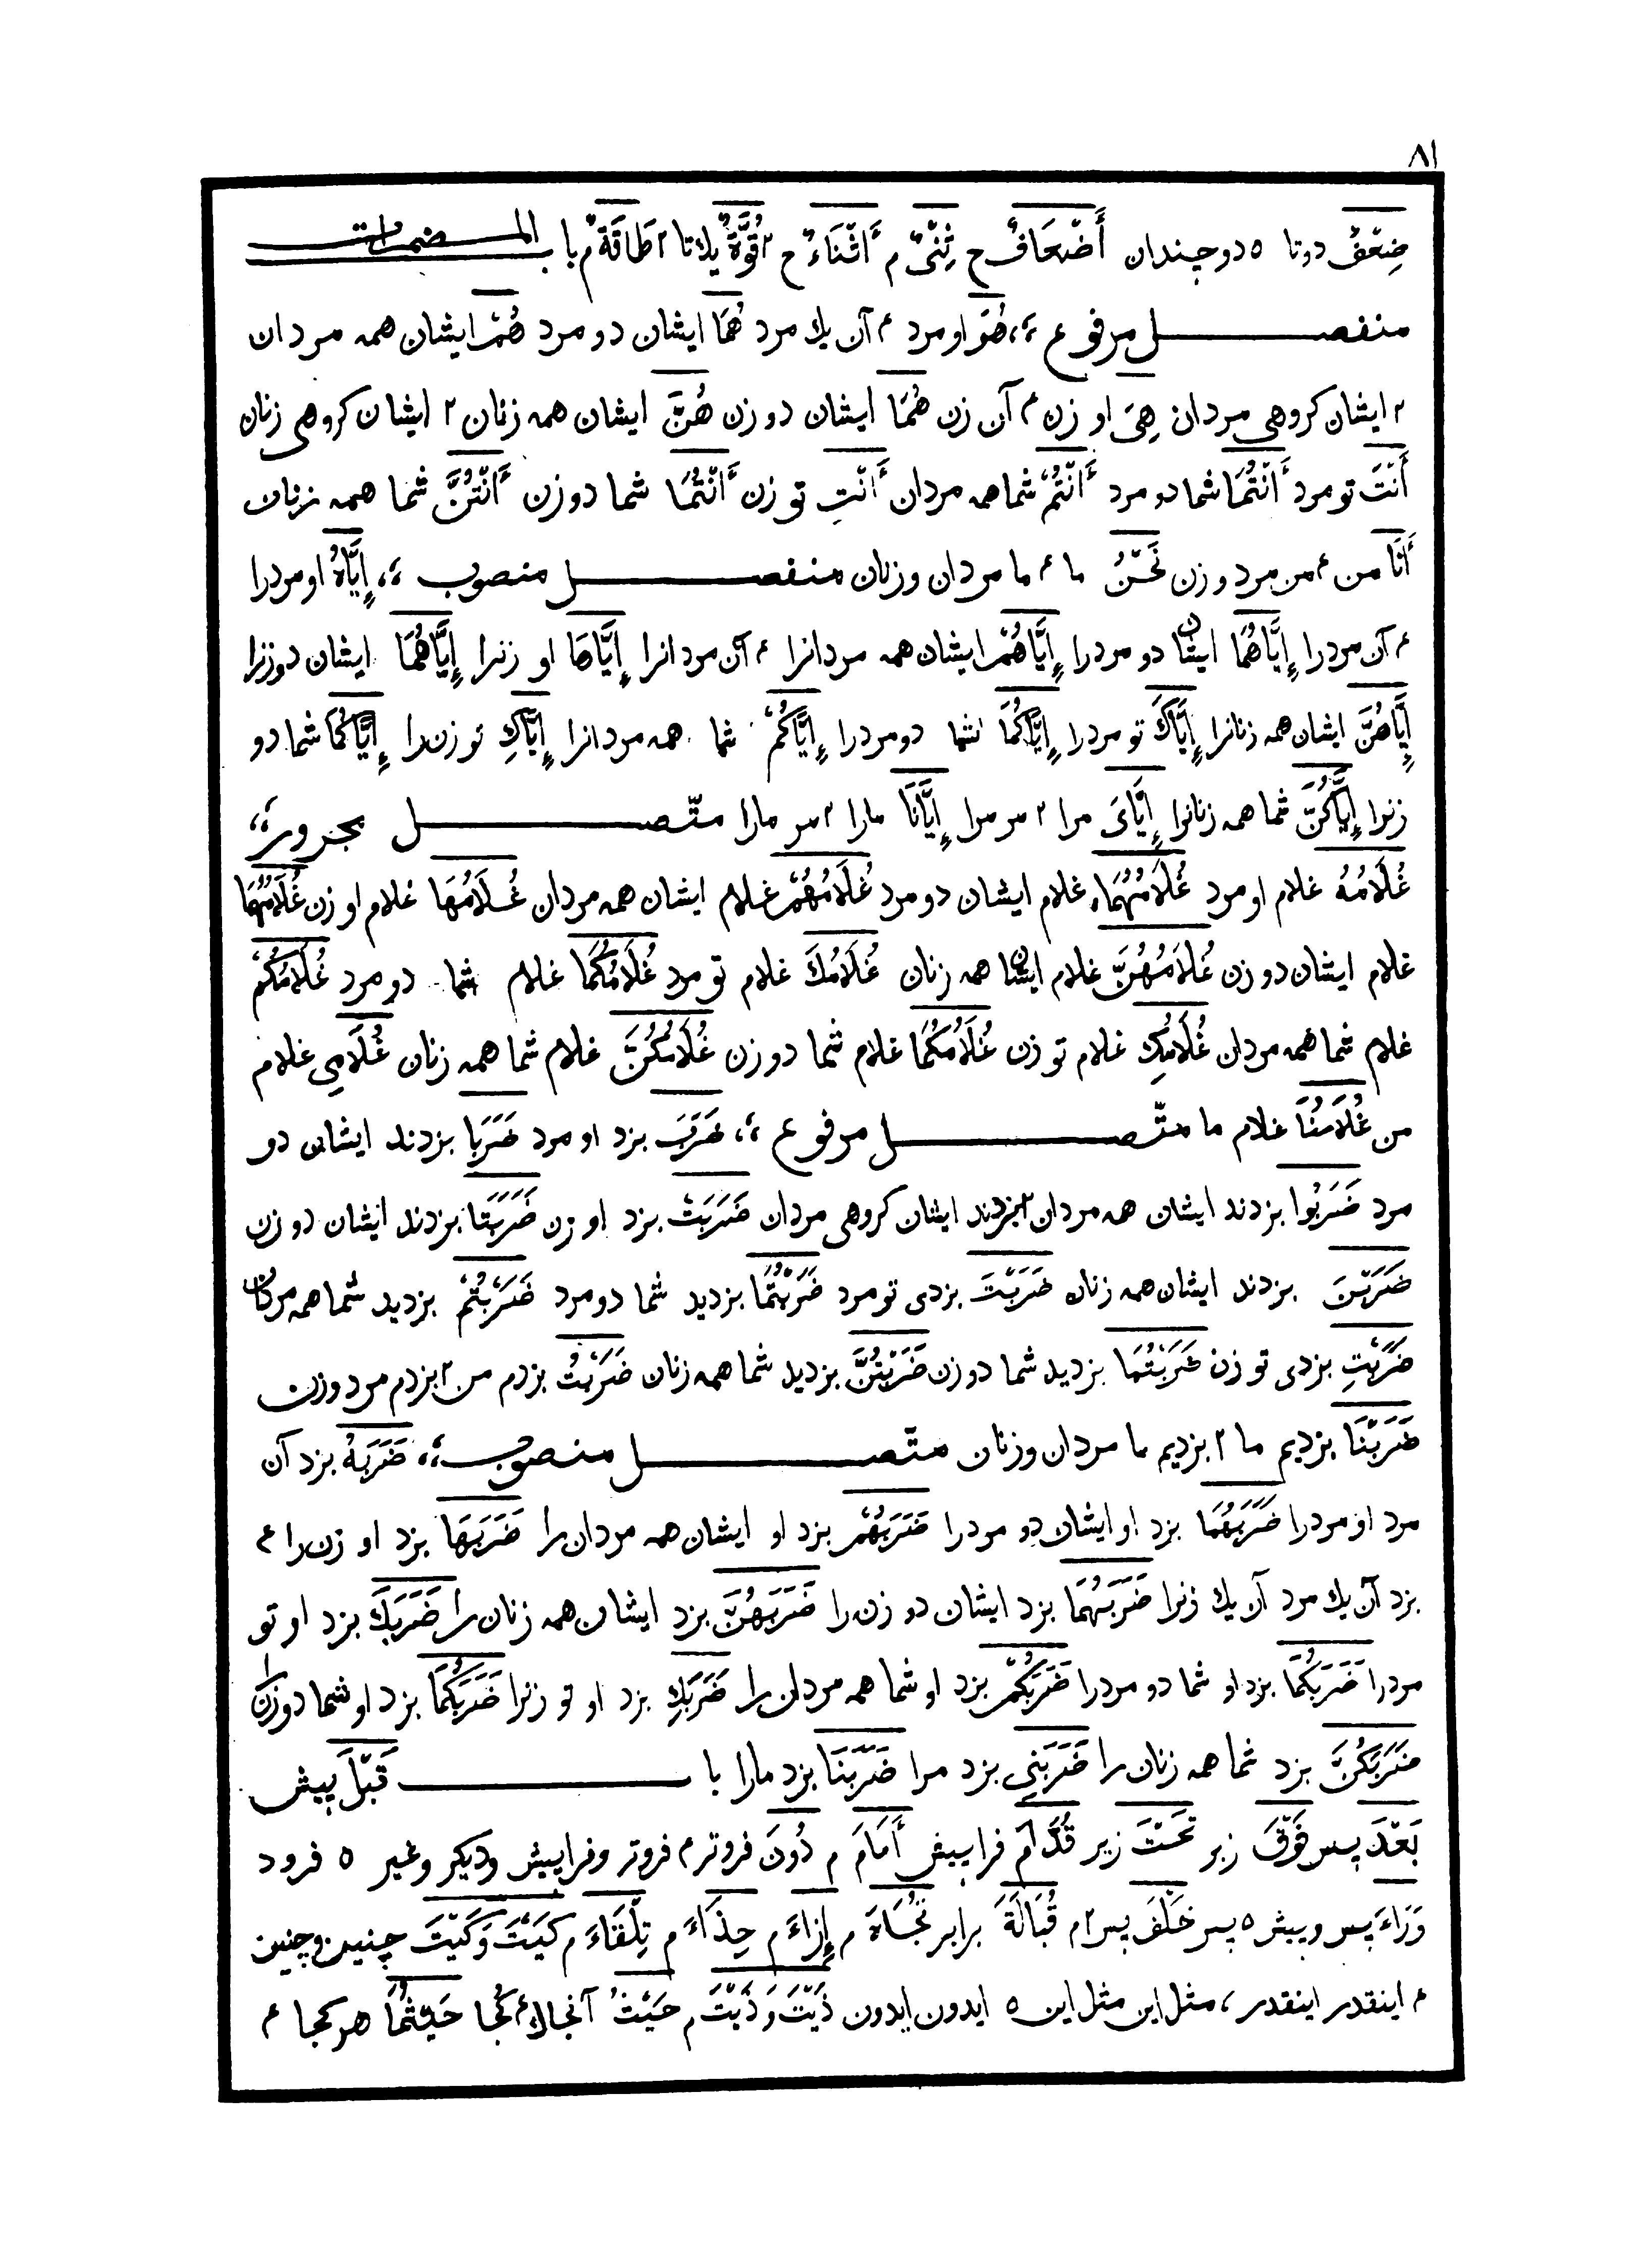 ۸۱
ضِعْفٌ دوتا ه دوچندان أَضْعَافٌ ج ثِنْیٌ م أَثْنَاءٌ ج ۲ قُوَّةٌ یك تا ۲ طَاقَةٌ م باب المضمرات
منفصل مرفوع ،، هُوَ او مرد ۶ آن یك مرد هُمَا ایشان دو مرد هُمْ ایشان همه مردان
۲ ایشان کروهی مردان هِیَ او زن ۶ آن زن هُمَا ایشان دو زن هُنَّ ایشان همه زنان ۲ ایشان کروهی زنان
أَنْتَ تو مرد أَنْتُمَا شما دو مرد أَنْتُمْ شما همه مردان أَنْتِ تو زن أَنْتُمَا شما دو زن أَنْتُنَّ شما همه زنان
أَنَا من ۶ من مرد و زن نَحْنُ ما ۶ ما مردان و زنان منفصل منصوب ،، إِیَّاهُ او مردرا
۶ آن مردرا إِیَّاهُمَا ایشان دو مردرا إِیَّاهُمْ ایشان همه مردانرا ۶ آن مردانرا إِیَّاهَا او زنرا إِیَّاهُمَا ایشان دو زنرا
إِیَّاهُنَّ ایشان همه زنانرا إِیَّاكَ تو مردرا إِیَّاكُمَا شما دو مردرا إِیَّاكُمْ شما همه مردانرا إِیَّاكِ تو زن را إِیَّاكُمَا شما دو
زنرا إِیَّاكُنَّ شما همه زنانرا إِیَّایَ مرا ۲ مر مرا إِیَّانَا مارا ۲ مر مارا متّصل مجرور ،،
غُلَامُهُ غلام او مرد غُلَامُهُمَا غلام ایشان دو مرد غُلَامُهُمْ غلام ایشان همه مردان غُلَامُهَا غلام او زن غُلَامُهُمَا
غلام ایشان دو زن غُلَامُهُنَّ غلام ایشان همه زنان غُلَامُكَ غلام تو مرد غُلَامُكُمَا غلام شما دو مرد غُلَامُكُمْ
غلام شما همه مردان غُلَامُكِ غلام تو زن غُلَامُكُمَا غلام شما دو زن غُلَامُكُنَّ غلام شما همه زنان غُلَامِی غلام
من غُلَامُنَا غلام ما متّصل مرفوع ،، ضَرَبَ بزد او مرد ضَرَبَا بزدند ایشان دو
مرد ضَرَبُوا بزدند ایشان همه مردان ۲ بزدند ایشان کروهی مردان ضَرَبَتْ بزد او زن ضَرَبَتَا بزدند ایشان دو زن
ضَرَبْنَ بزدند ایشان همه زنان ضَرَبْتَ بزدی تو مرد ضَرَبْتُمَا بزدید شما دو مرد ضَرَبْتُمْ بزدید شما همه مردان
ضَرَبْتِ بزدی تو زن ضَرَبْتُمَا بزدید شما دو زن ضَرَبْتُنَّ بزدید شما همه زنان ضَرَبْتُ بزدم من ۲ بزدم مرد و زن
ضَرَبْنَا بزدیم ما ۲ بزدیم ما مردان و زنان متّصل منصوب ،، ضَرَبَهُ بزد آن
مرد او مردرا ضَرَبَهُمَا بزد او ایشان دو مردرا ضَرَبَهُمْ بزد او ایشان همه مردان را ضَرَبَهَا بزد او زن را ۶
بزد آن یك مرد آن یك زنرا ضَرَبَهُمَا بزد ایشان دو زن را ضَرَبَهُنَّ بزد ایشان همه زنان را ضَرَبَكَ بزد او تو
مردرا ضَرَبَكُمَا بزد او شما دو مردرا ضَرَبَكُمْ بزد او شما همه مردان را ضَرَبَكِ بزد او تو زنرا ضَرَبَكُمَا بزد او شما دو زن را
ضَرَبَكُنَّ بزد شما همه زنان را ضَرَبَنِی بزد مرا ضَرَبَنَا بزد مارا باب قَبْلَ پیش
بَعْدَ پس فَوْقَ زبر تَحْتَ زیر قُدَّامَ فرا پیش أَمَامَ م دُونَ فروتر م فروتر و فرا پیش و دیکر و غیر ه فرود
وَرَاءَ پس و پیش ه پس خَلْفَ پس ۲ م قُبَالَةَ برابر تُجَاهَ م إِزَاءَ م حِذَاءَ م تِلْقَاءَ م كَیْتَ وَكَیْتَ چنین و چنین
۶ اینقدر اینقدر ، مثل این مثل این ه ایدون ایدون ذَیْتَ وَ ذَیْتَ م حَیْثُ آنجاك ۶ کجا حَیْثُمَا هر کجا ۶